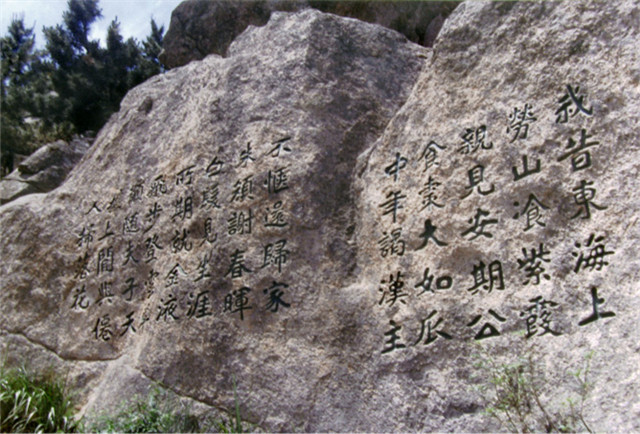 我昔東海上
勞山飡紫霞
親見安期公
食棗大如瓜
中年謁漢主
不愜還歸家
朱顏謝春暉
白髮見生涯
所期就金液
飛步登雲車
願隨夫子天
壇上閒與僊
人掃落花